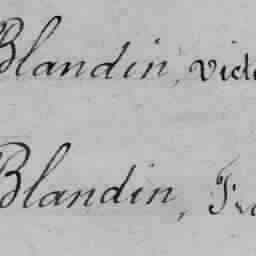 Blandin, vict
Blandin, Fr